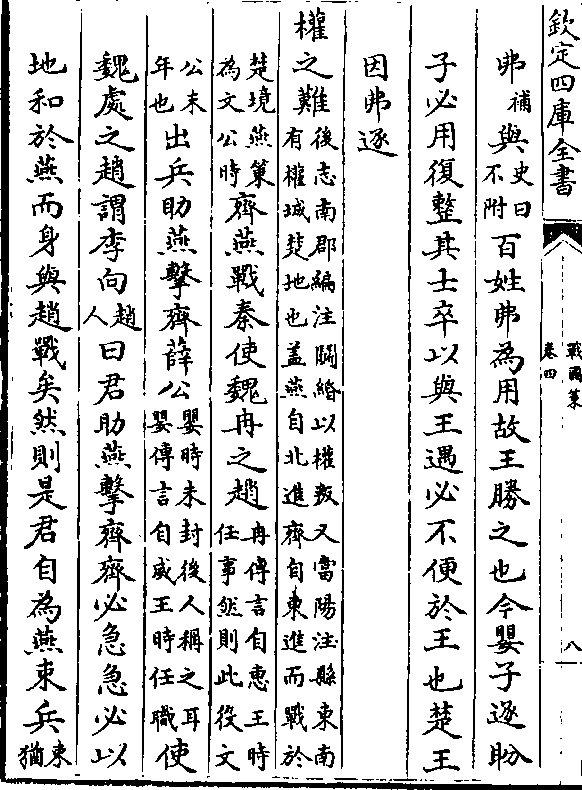 欽定四庫全書
戰國策
卷四
八
弗補與史曰不附百姓弗為用故王勝之也今嬰子逐盼
子必用復整其士卒以與王遇必不便於王也楚王
因弗逐
權之難後志南郡編注鬭緡以權叛又當陽注縣東南有權城楚地也蓋燕自北進齊自東進而戰於
楚境燕策為文公時齊燕戰秦使魏冉之趙冉傳言自惠王時任事然則此役文
公末年也出兵助燕擊齊薛公嬰時未封後人稱之耳嬰傳言自威王時任職使
魏處之趙謂李向趙人曰君助燕擊齊齊必急急必以
地和於燕而身與趙戰矣然則是君自為燕東兵東猶